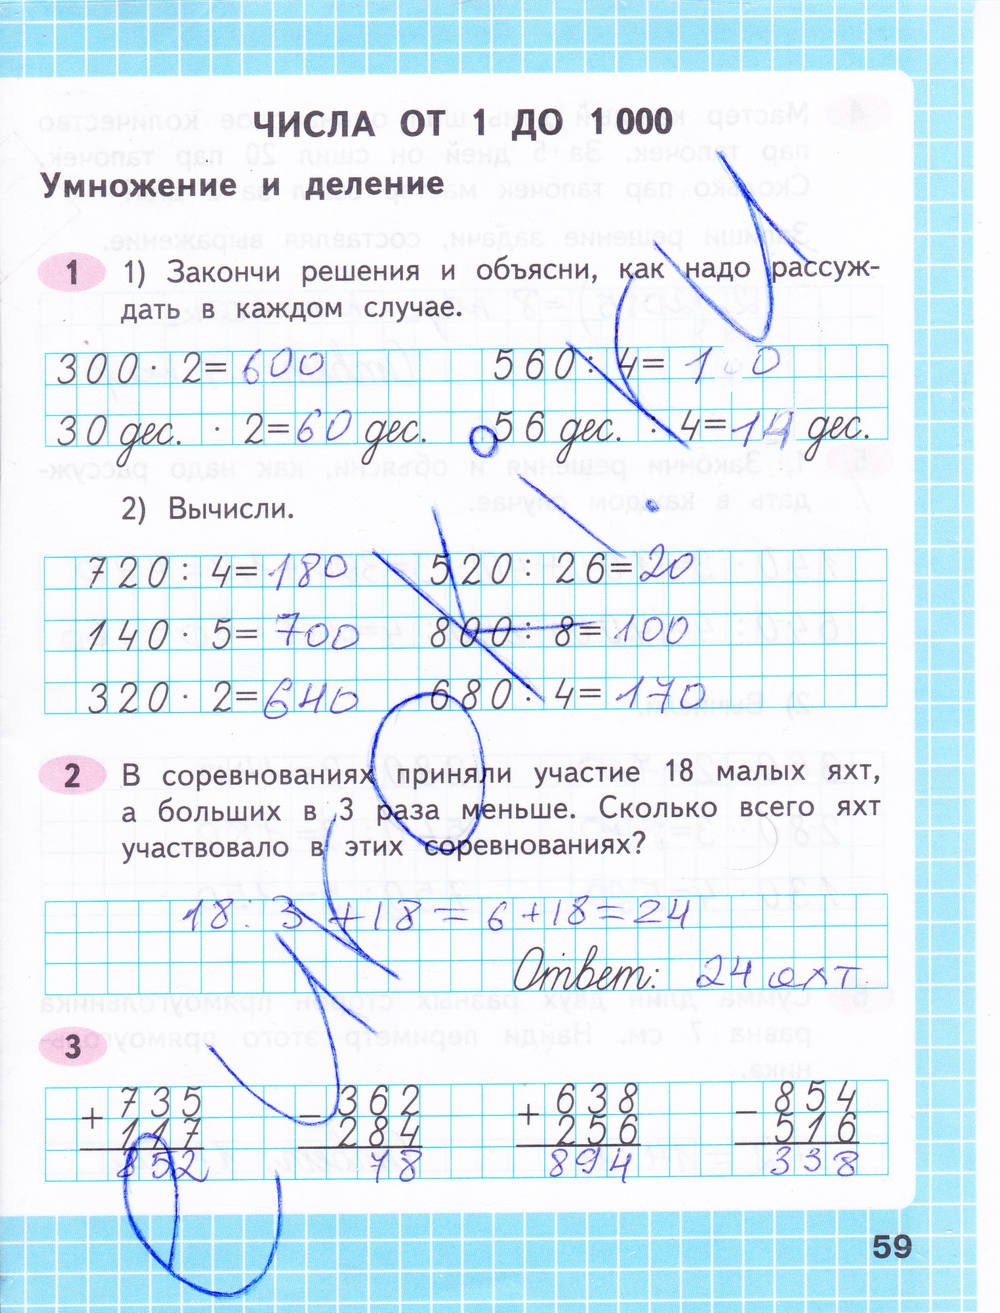 ЧИСЛА ОТ 1 ДО 1000
Умножение и деление
1 1) Закончи решения и объясни, как надо рассуж-
дать в каждом случае.
300 · 2= 600 560 : 4= 1 0
30 дес. · 2=60 дес. 56 дес. : 4=14 дес.
2) Вычисли.
720 : 4=180 520 : 26=20
140 5= 700 800 : 8=100
320 · 2=640 680 : 4= 170
2 В соревнованиях приняли участие 18 малых яхт,
а больших в 3 раза меньше. Сколько всего яхт
участвовало в этих соревнованиях?
18 : 3 +18 = 6 +18=24
Ответ: 24 яхт
3
+ 735 − 362 + 638 − 854
117 284 256 516
852 78 894 338
59